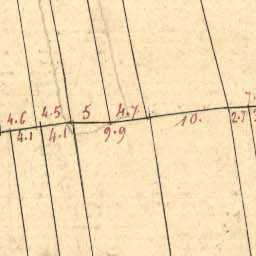 4.6 4.5 5 4.7
4.1 4.1 9.9 10. 2.7